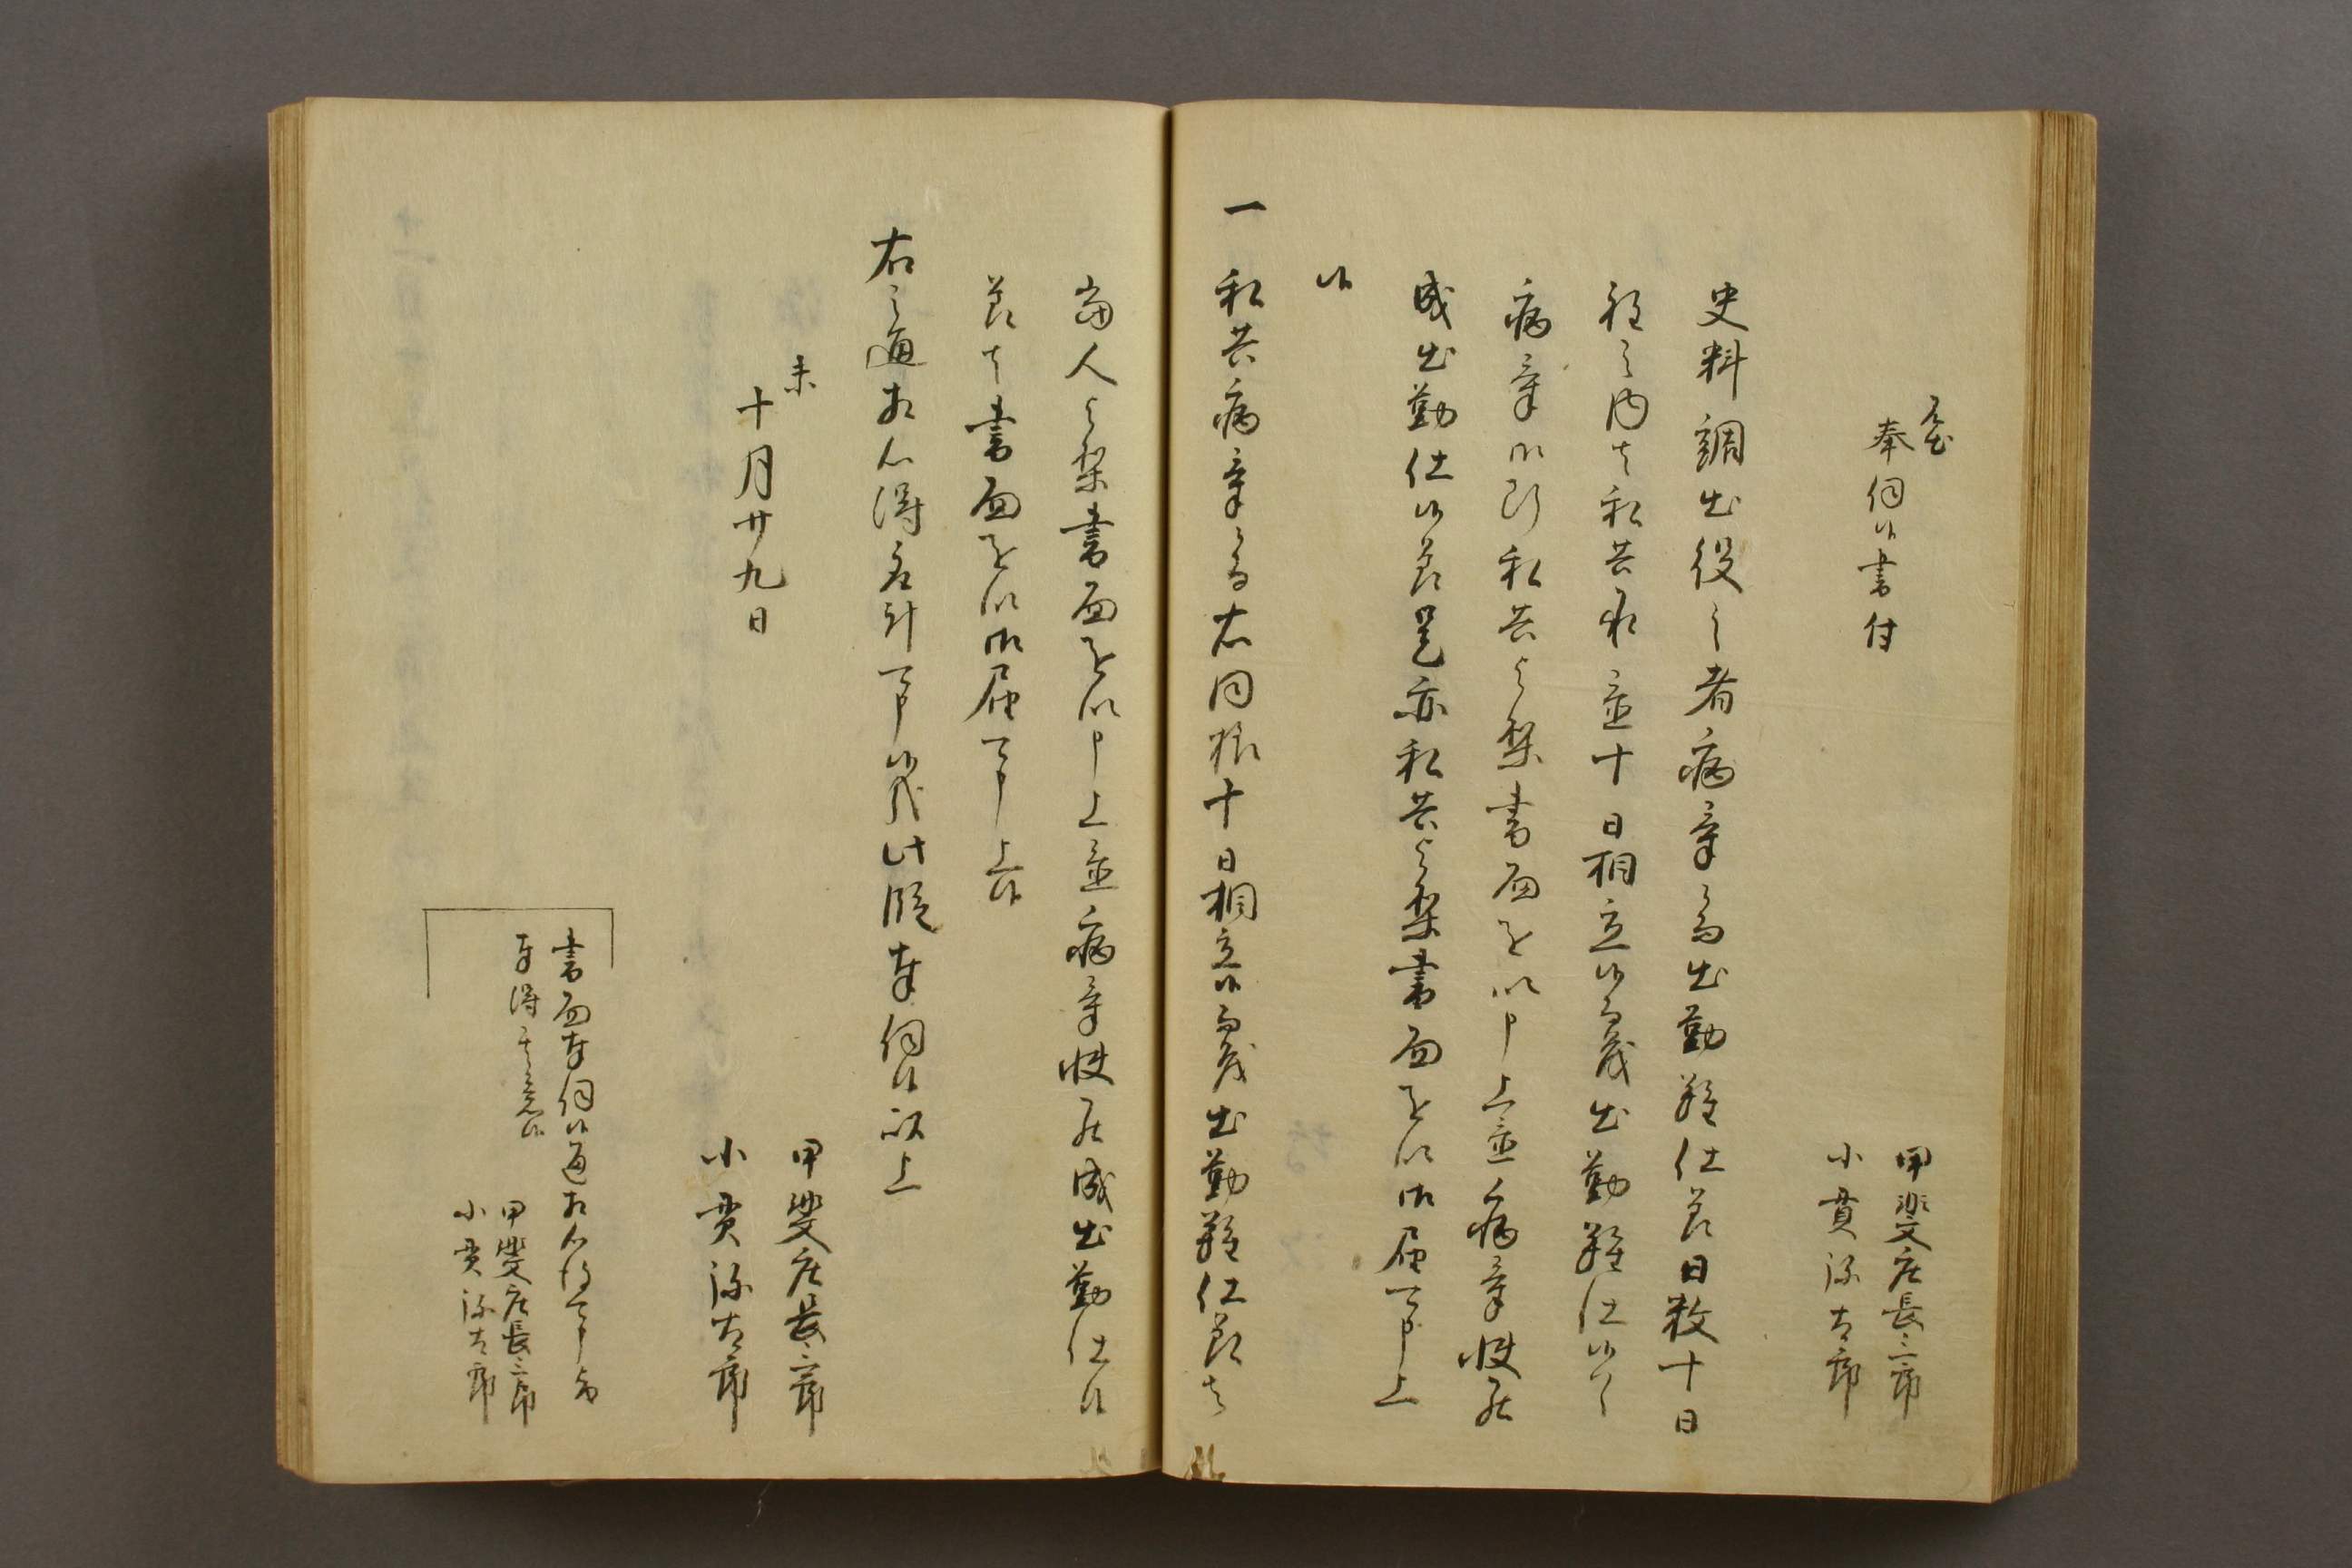 奉伺候書付
甲斐庄長三郎
小貫弥太郎
史料調出役之者病気ニ而出勤難仕節日数十日
程之内者私共承置十日相立候而茂出勤難仕候ハヽ
病気御断私共ゟ以書面を以申上並病気快罷
成出勤仕候節是亦私共ゟ以書面を以御届可申上
候
一 私共病気ニ而右同様十日相立候而茂出勤難仕節者
当人ゟ書面を以申上並病気快罷成出勤仕候
節者書面を以御届可申上候
右之通相心得取計可申候哉此段奉伺候以上
未
十月廿九日
甲斐庄長三郎
小貫弥太郎
書面奉伺候通相心得可申旨
奉得其意候
甲斐庄長三郎
小貫弥太郎